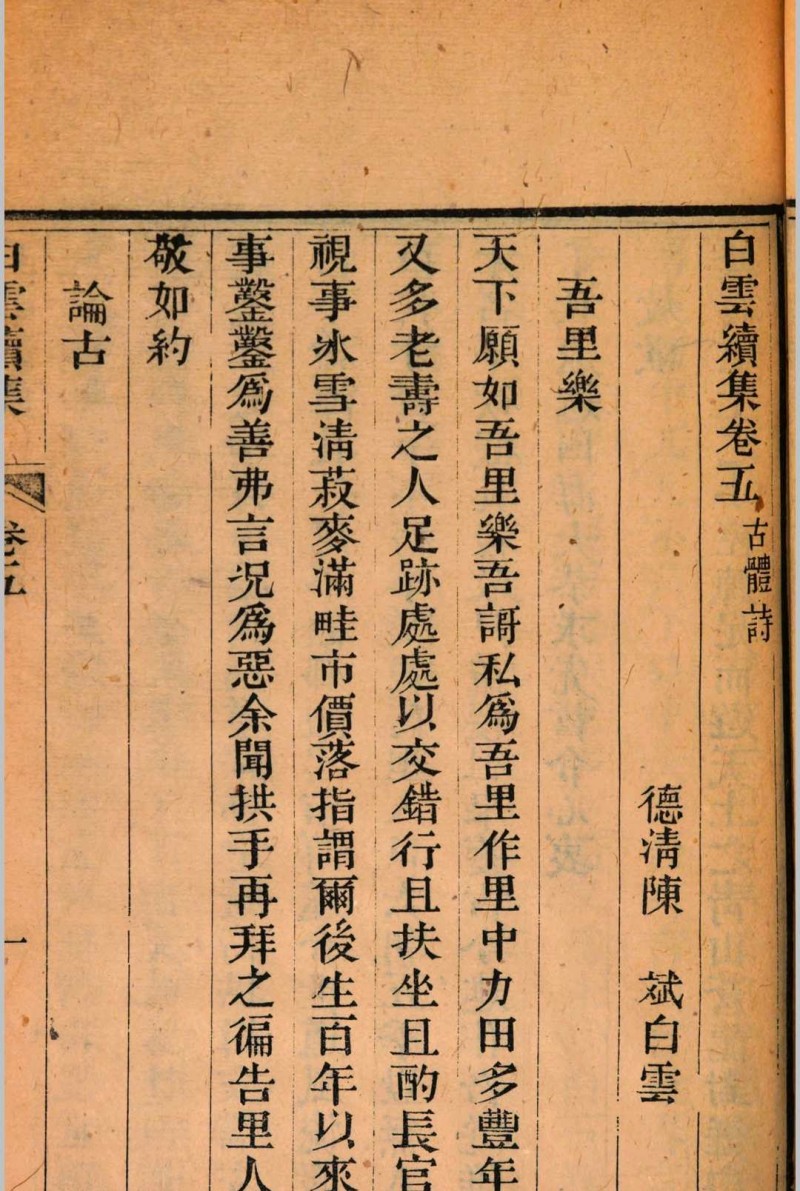 白雲續集卷五 古體詩
德清陳　斌白雲
吾里樂
天下願如吾里樂吾謌私爲吾里作里中力田多豐年
又多老壽之人足跡處處以交錯行且扶坐且酌長官
視事氷雪清菽麥滿畦市價落指謂爾後生百年以來
事鑿鑿爲善弗言况爲惡余聞拱手再拜之徧告里人
敬如約
論古
白雲續集　卷五　一